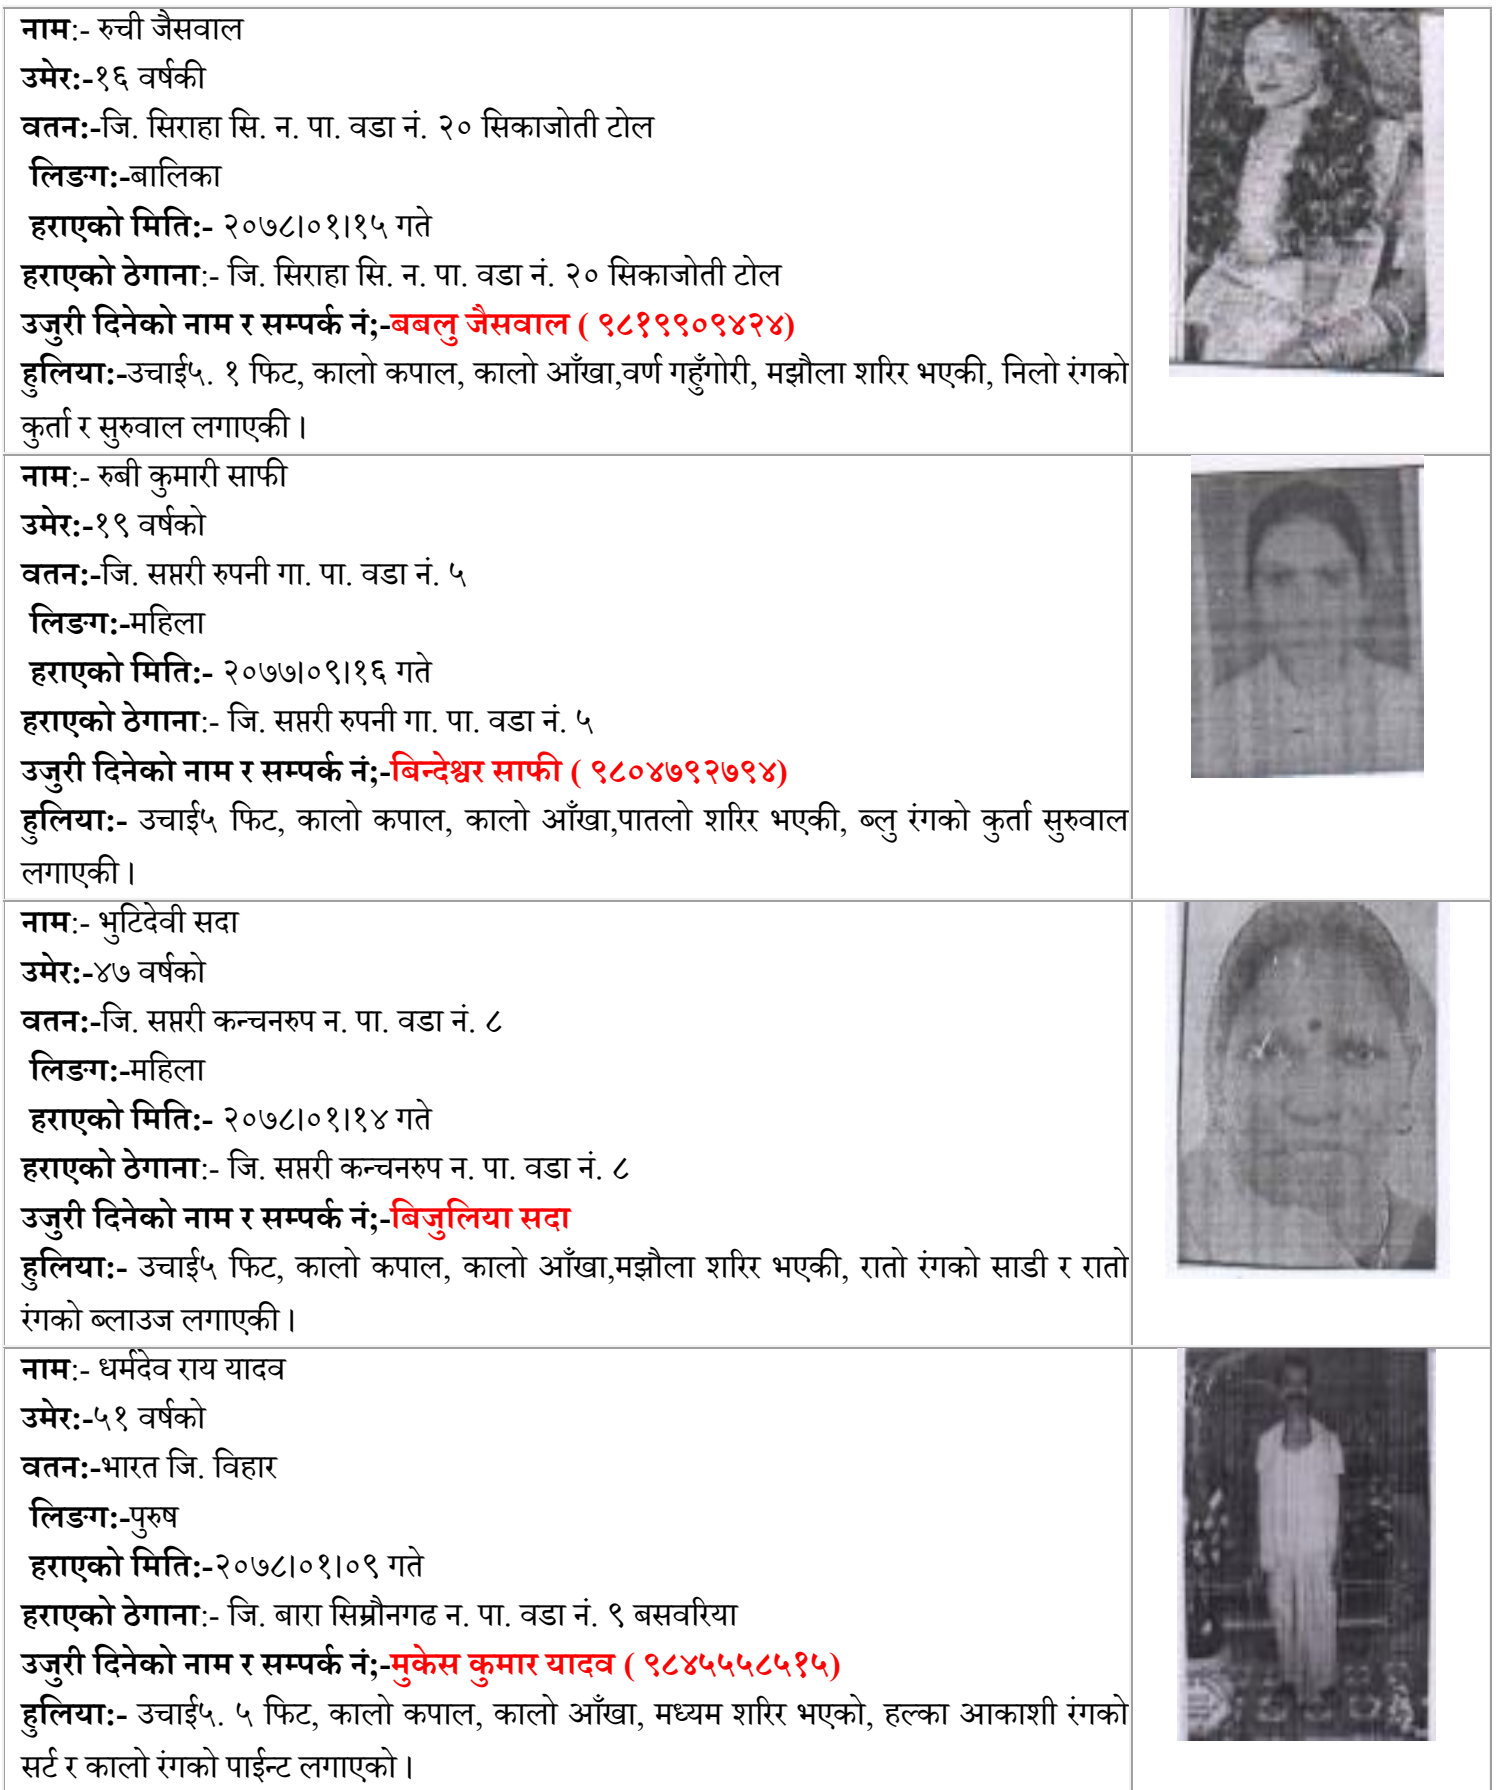 नाम:- रुची जैसवाल
उमेर:-१६ वर्षकी
वतन:-जि. सिराहा सि. न. पा. वडा नं. २० सिकाजोती टोल
लिङग:-बालिका
हराएको मिति:- २०७८।०१।१५ गते
हराएको ठेगाना:- जि. सिराहा सि. न. पा. वडा नं. २० सिकाजोती टोल
उजुरी दिनेको नाम र सम्पर्क नं;-बबलु जैसवाल ( ९८१९९०९४२४)
हुलिया:-उचाई५. १ फिट, कालो कपाल, कालो आँखा,वर्ण गहुँगोरी, मझौला शरिर भएकी, निलो रंगको
कुर्ता र सुरुवाल लगाएकी ।
नाम:- रुबी कुमारी साफी
उमेर:-१९ वर्षको
वतन:-जि. सप्तरी रुपनी गा. पा. वडा नं. ५
लिङग:-महिला
हराएको मिति:- २०७७।०९।१६ गते
हराएको ठेगाना:- जि. सप्तरी रुपनी गा. पा. वडा नं. ५
उजुरी दिनेको नाम र सम्पर्क नं;-बिन्देश्वर साफी ( ९८०४७९२७९४)
हुलिया:- उचाई५ फिट, कालो कपाल, कालो आँखा,पातलो शरिर भएकी, ब्लु रंगको कुर्ता सुरुवाल
लगाएकी ।
नाम:- भुटिदेवी सदा
उमेर:-४७ वर्षको
वतन:-जि. सप्तरी कन्चनरुप न. पा. वडा नं. ८
लिङग:-महिला
हराएको मिति:- २०७८।०१।१४ गते
हराएको ठेगाना:- जि. सप्तरी कन्चनरुप न. पा. वडा नं. ८
उजुरी दिनेको नाम र सम्पर्क नं;-बिजुलिया सदा
हुलिया:- उचाई५ फिट, कालो कपाल, कालो आँखा,मझौला शरिर भएकी, रातो रंगको साडी र रातो
रंगको ब्लाउज लगाएकी ।
नाम:- धर्मदेव राय यादव
उमेर:-५१ वर्षको
वतन:-भारत जि. विहार
लिङग:-पुरुष
हराएको मिति:-२०७८।०१।०९ गते
हराएको ठेगाना:- जि. बारा सिम्रौनगढ न. पा. वडा नं. ९ बसवरिया
उजुरी दिनेको नाम र सम्पर्क नं;-मुकेस कुमार यादव ( ९८४५५५८५१५)
हुलिया:- उचाई५. ५ फिट, कालो कपाल, कालो आँखा, मध्यम शरिर भएको, हल्का आकाशी रंगको
सर्ट र कालो रंगको पाईन्ट लगाएको ।